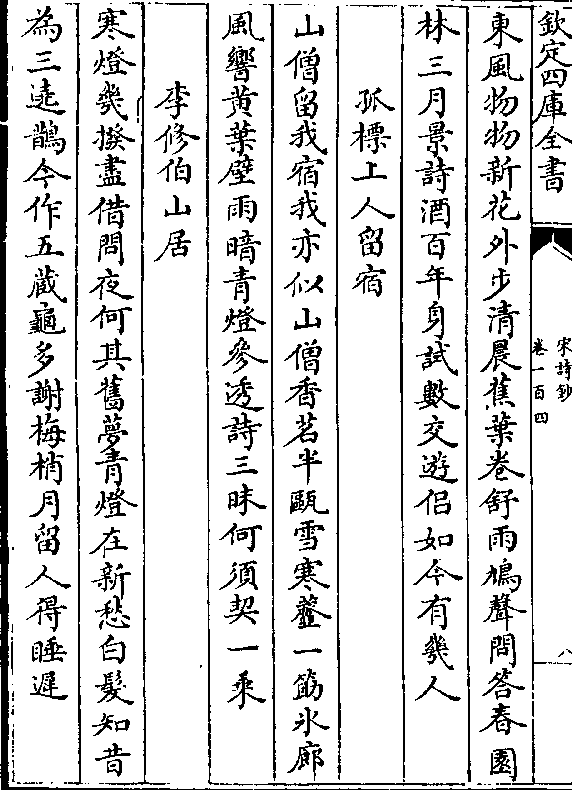 欽定四庫全書
宋詩鈔
卷一百四
八
東風物物新花外步清晨蕉葉卷舒雨鳩聲問答春園
林三月景詩酒百年身試數交遊侣如今有幾人
孤標上人留宿
山僧留我宿我亦似山僧香茗半甌雪寒虀一筯氷廊
風響黄葉壁雨暗青燈參透詩三昧何須契一乘
李修伯山居
寒燈幾撥盡借問夜何其舊夢青燈在新愁白髮知昔
為三遶鵲今作五蔵龜多謝梅梢月留人得睡遲